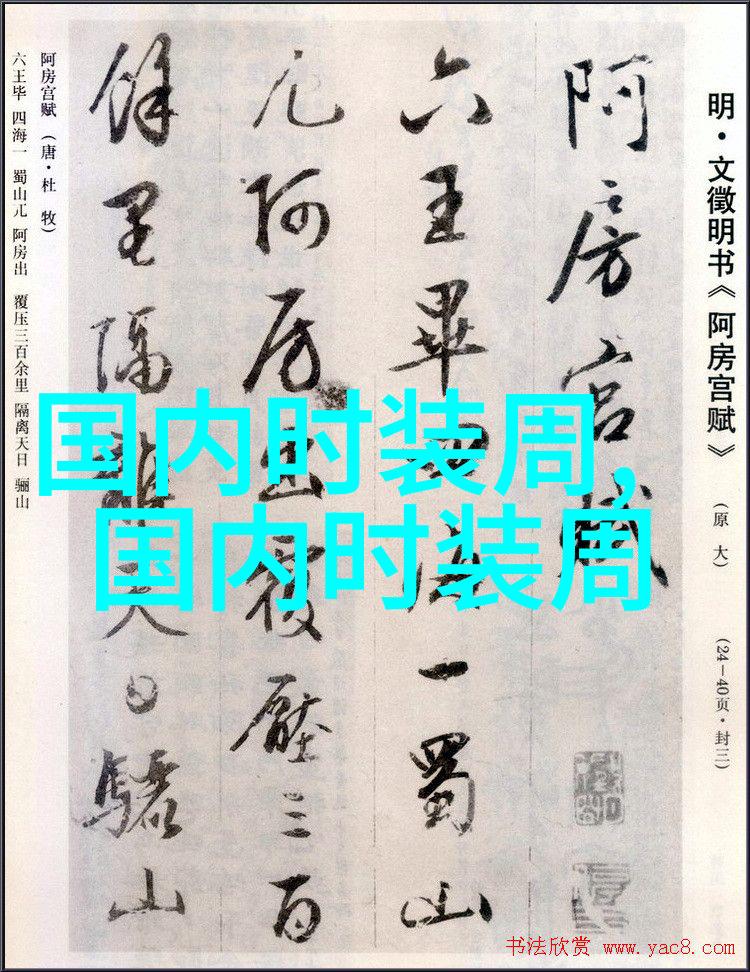 明·文徵明书《阿房宫赋》 (原大) (24—40页·封三)
阿房宫赋
六王畢四海一蜀山
兀阿房出覆壓三百
餘里隔離天日驪山
阿房宫赋 (唐·杜 牧)
六王毕 四海一 蜀山兀 阿房出 覆压三百余里 隔离天日 骊山
国内时装周,
国内时装周
书法欣赏 www.yac8.com